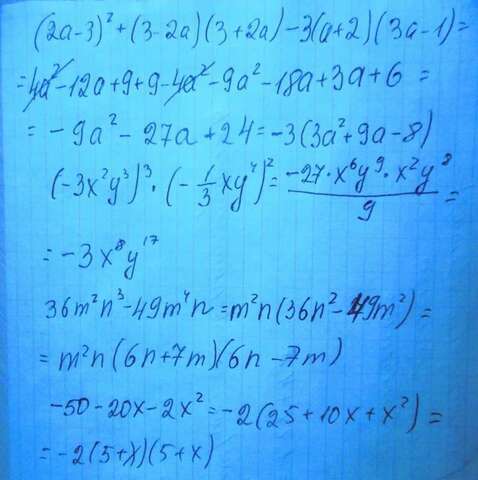 (2a-3)² + (3-2a)(3+2a) - 3(a+2)(3a-1) =
= 4a² - 12a + 9 + 9 - 4a² - 9a² - 18a + 3a + 6 =
= - 9a² - 27a + 24 = -3(3a² + 9a - 8)
(-3x²y³)³ · (-1/3 xy⁴)² = -27 · x⁶y⁹ · x²y⁸ / 9 =
= -3x⁸y¹⁷
36m²n³ - 49m⁴n = m²n(36n² - 49m²) =
= m²n(6n+7m)(6n-7m)
-50 - 20x - 2x² = -2(25 + 10x + x²) =
= -2(5+x)(5+x)